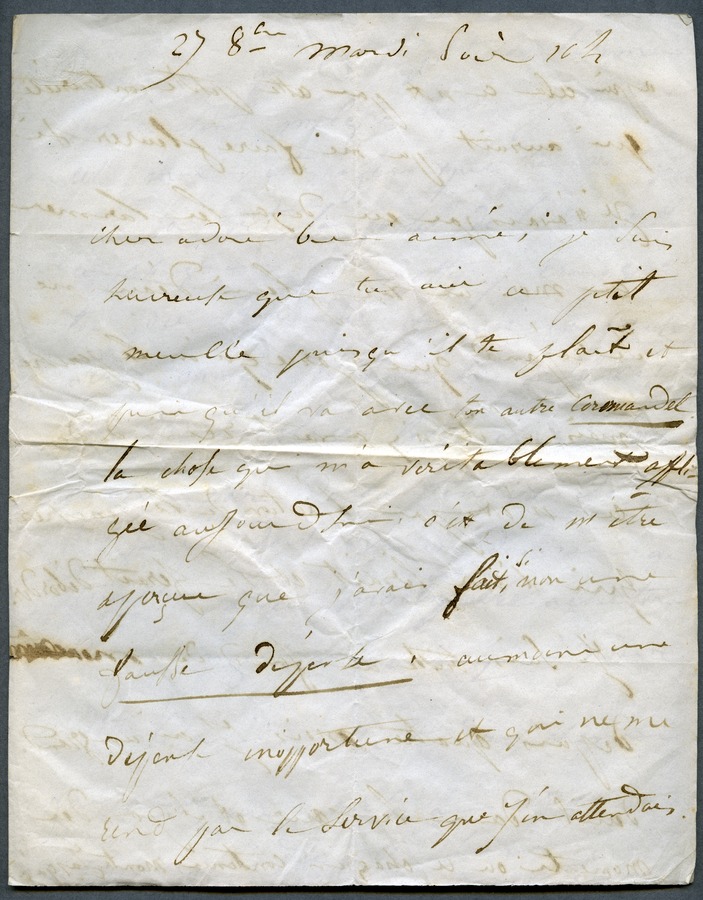 27 8bre mardi Soir 10 h
cher adoré bien aimé, je suis
heureuse que tu aie ce ptit
meuble puisqu'il te plait et
puisqu'il va avec ton autre Coromandel
la chose qui m'a véritablement affli-
gée aujourd'hui, c'est de m'être
aperçue que j'avais fait, si non une
fausse dépense, au moins une
dépense inopportune et qui ne me
rend pas le Service que j'en attendais.